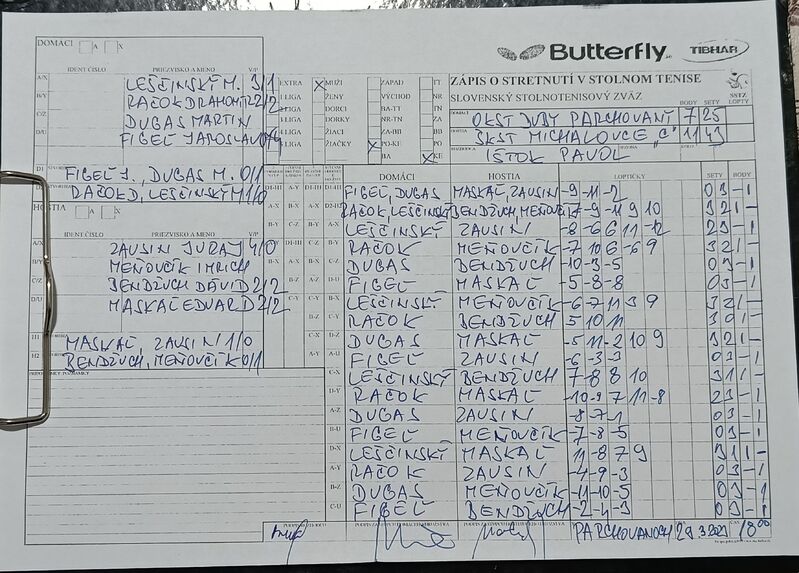 DOMÁCI A X
Butterfly TIBHAR
IDENT ČÍSLO PRIEZVISKO A MENO V/P
A/X LEŠČINSKÝ M. 3/1
B/Y RAČOK DRAHOMÍR 2/2
C/Z DUGAS MARTIN
D/U FIGEĽ JAROSLAV 0/4
EXTRA X MUŽI ZÁPAD TT
LIGA ŽENY VÝCHOD NR
LIGA DORCI BA-TT TN
LIGA DORKY NR-TN ZA
LIGA ŽIACI ZA-BB BB
ŽIAČKY X PO-KE PO
BA X KE
ZÁPIS O STRETNUTÍ V STOLNOM TENISE
SLOVENSKÝ STOLNOTENISOVÝ ZVÄZ
SSTZ
BODY SETY LOPTY
OKST DUBY PARCHOVANY 7 25
ŠKST MICHALOVCE "C" 11 43
IŠTOK PAVOL
D1 FIGEĽ J., DUGAS M. 0/1
RAČOK D, LEŠČINSKÝ M 1/0
HOSTIA A X
IDENT ČÍSLO PRIEZVISKO A MENO V/P
A/X ZAUSIN JURAJ 4/0
B/Y MEŇOVČÍK IMRICH
BENDŽUCH DÁVID 2/2
D/U MASKAĽ EDUARD 2/2
H1 MASKAĽ, ZAUSIN 1/0
H2 BENDŽUCH, MEŇOVČÍK 0/1
DOMÁCI HOSTIA LOPTIČKY SETY BODY
FIGEĽ, DUGAS MASKAĽ, ZAUSIN -9 -11 -2 0 3 - 1
RAČOK, LEŠČINSKÝ BENDŽUCH, MEŇOVČÍK -7 -9 11 9 10 3 2 1 -
LEŠČINSKÝ ZAUSIN -8 -6 6 11 -12 2 3 - 1
RAČOK MEŇOVČÍK -7 10 6 -6 9 3 2 1 -
DUGAS BENDŽUCH -10 -3 -5 0 3 - 1
FIGEĽ MASKAĽ -5 -8 -8 0 3 - 1
LEŠČINSKÝ MEŇOVČÍK -6 -7 11 3 9 3 2 1 -
RAČOK BENDŽUCH 5 10 11 3 0 1 -
DUGAS MASKAĽ -5 11 -2 10 9 3 2 1 -
FIGEĽ ZAUSIN -6 -3 -3 0 3 - 1
LEŠČINSKÝ BENDŽUCH 7 -8 8 10 3 1 1 -
RAČOK MASKAĽ -10 -9 7 11 -8 2 3 - 1
DUGAS ZAUSIN -8 -7 -1 0 3 - 1
FIGEĽ MEŇOVČÍK -7 -8 -5 0 3 - 1
LEŠČINSKÝ MASKAĽ -11 8 7 9 3 1 1 -
RAČOK ZAUSIN -4 -9 -3 0 3 - 1
DUGAS MEŇOVČÍK -11 -10 -5 0 3 - 1
FIGEĽ BENDŽUCH -2 -4 -3 0 3 - 1
PARCHOVANOCH 29.3.2021 18 00